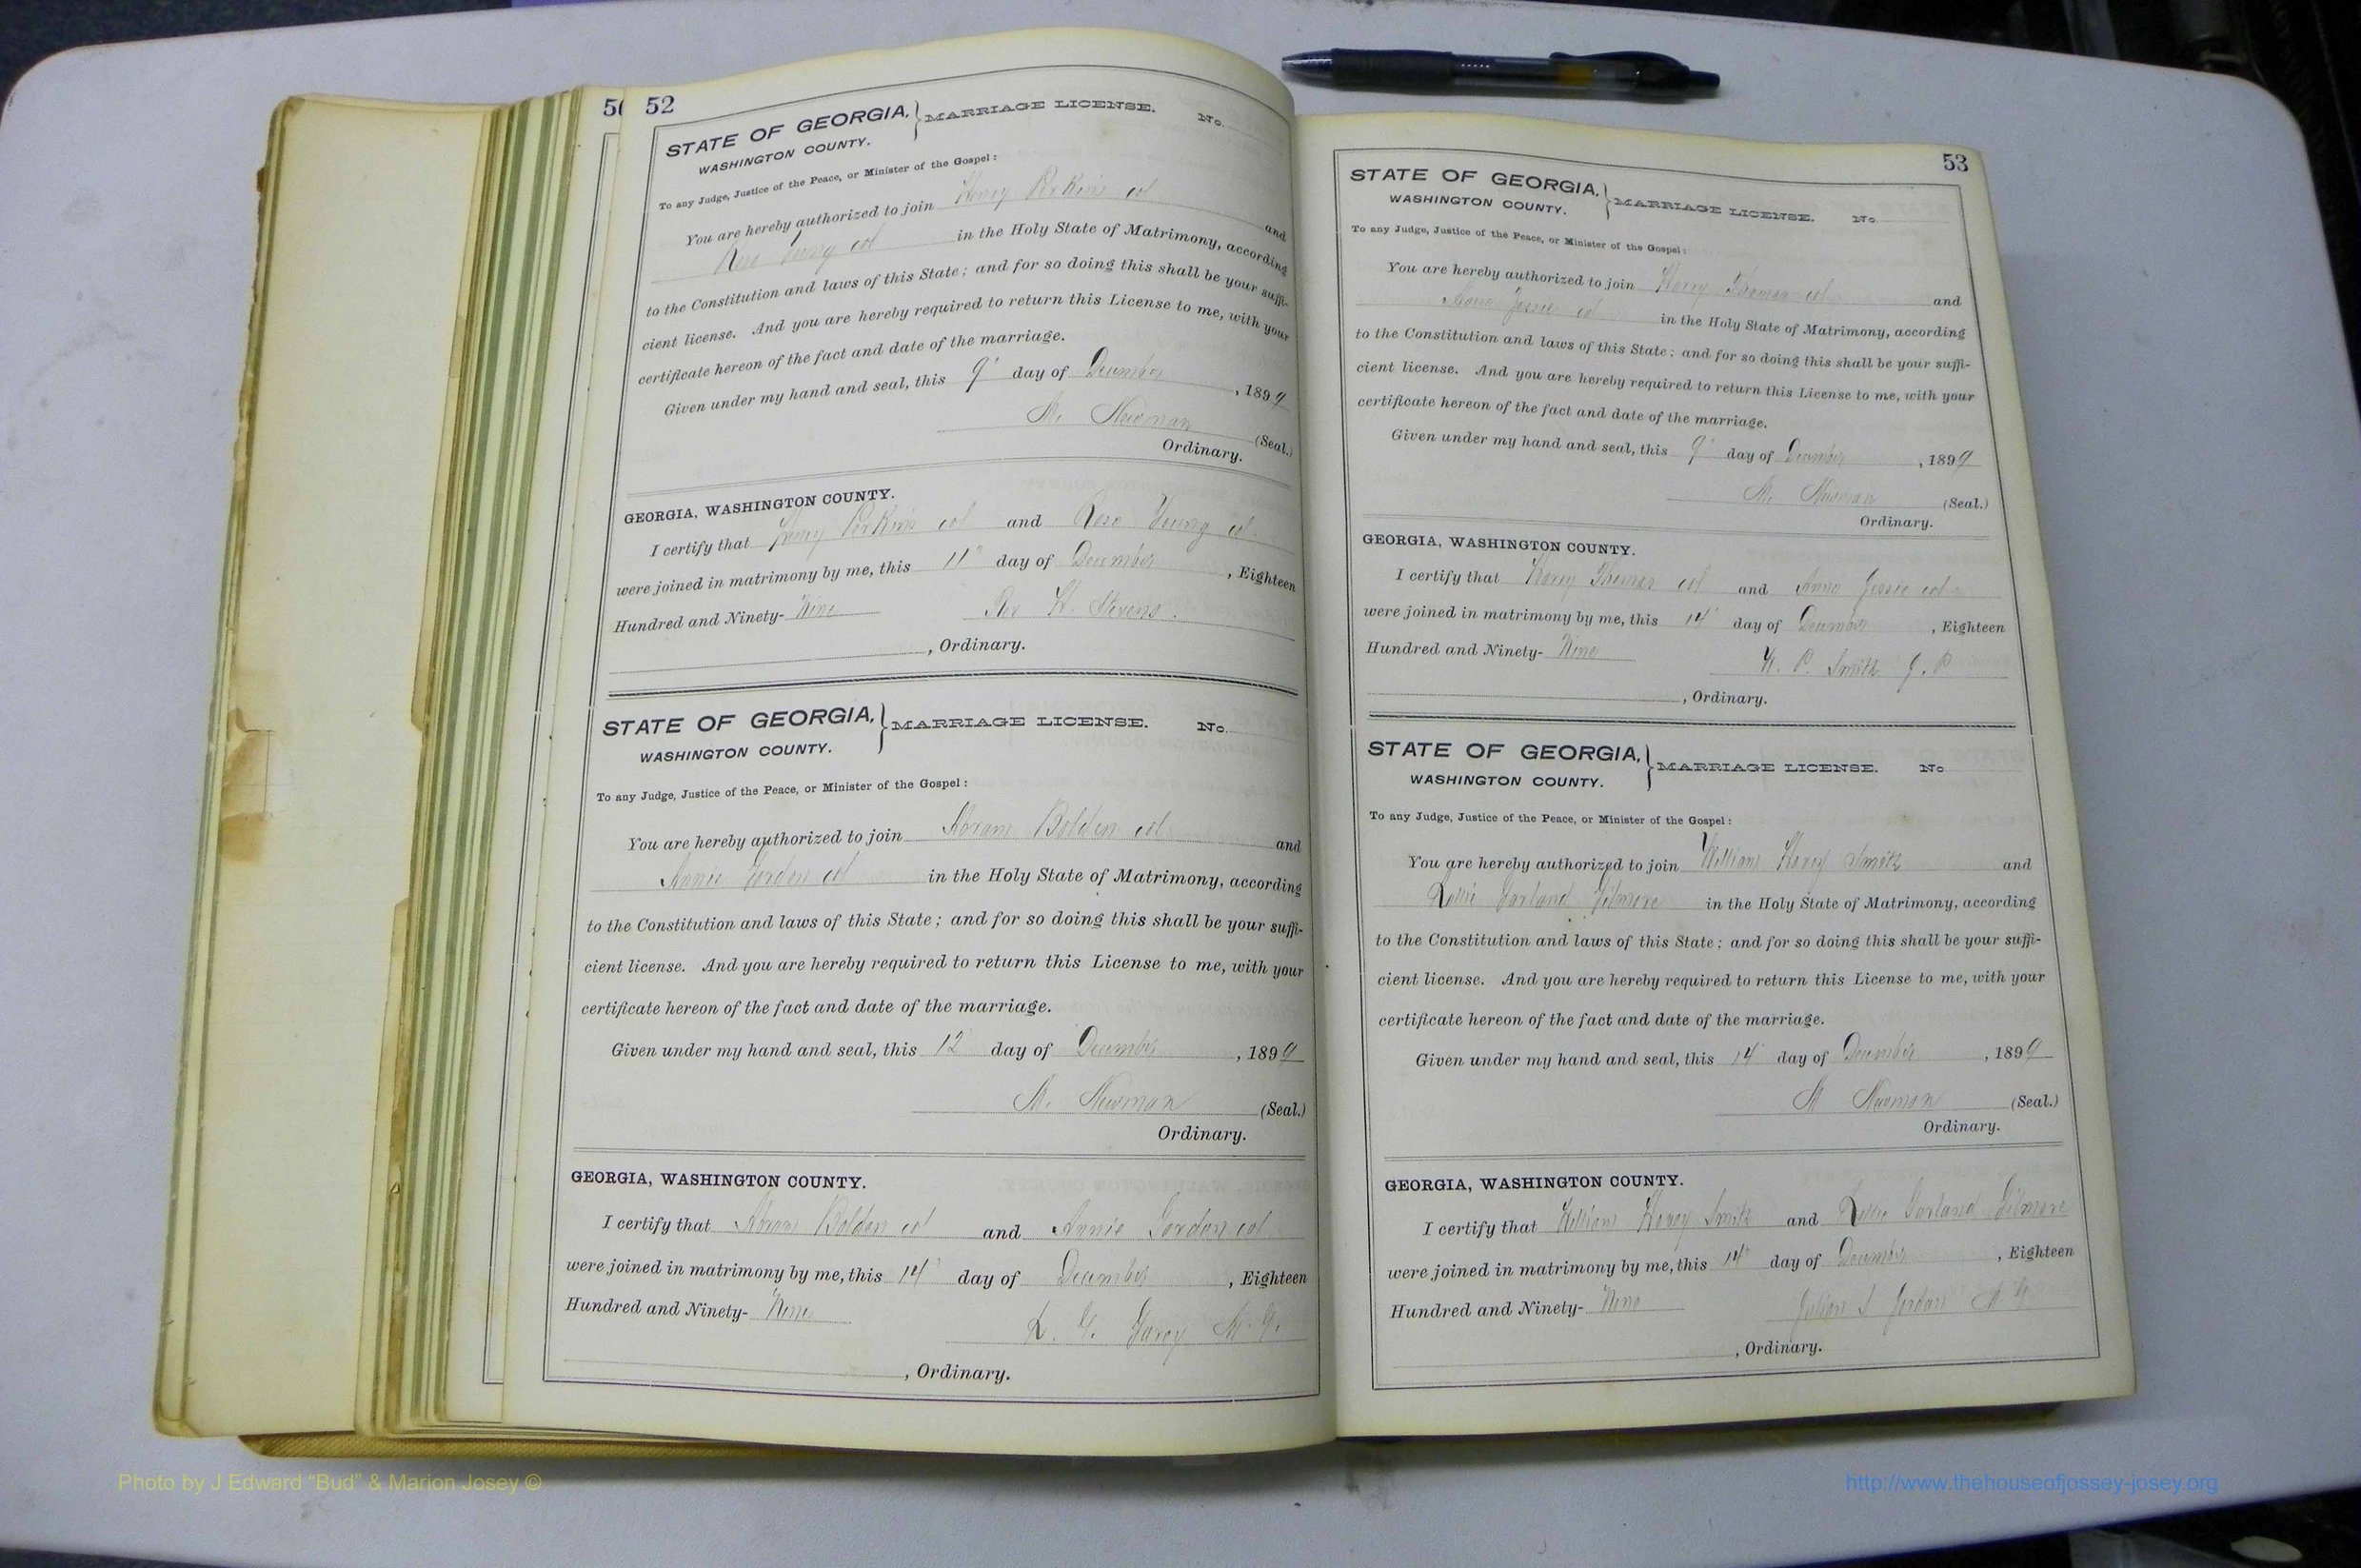 50
52
STATE OF GEORGIA, } MARRIAGE LICENSE. No.
WASHINGTON COUNTY.
To any Judge, Justice of the Peace, or Minister of the Gospel:
You are hereby authorized to join Henry Perkins col and
Rosa Young col in the Holy State of Matrimony, according
to the Constitution and laws of this State; and for so doing this shall be your suffi-
cient license. And you are hereby required to return this License to me, with your
certificate hereon of the fact and date of the marriage.
Given under my hand and seal, this 9" day of December, 1899
M. Newman (Seal.)
Ordinary.
GEORGIA, WASHINGTON COUNTY.
I certify that Henry Perkins col and Rosa Young col
were joined in matrimony by me, this 11" day of December, Eighteen
Hundred and Ninety- Nine Rev H. Stevens.
, Ordinary.
STATE OF GEORGIA, } MARRIAGE LICENSE. No.
WASHINGTON COUNTY.
To any Judge, Justice of the Peace, or Minister of the Gospel:
You are hereby authorized to join Abram Bolden col and
Annie Gordon col in the Holy State of Matrimony, according
to the Constitution and laws of this State; and for so doing this shall be your suffi-
cient license. And you are hereby required to return this License to me, with your
certificate hereon of the fact and date of the marriage.
Given under my hand and seal, this 12" day of December, 1899
M. Newman (Seal.)
Ordinary.
GEORGIA, WASHINGTON COUNTY.
I certify that Abram Bolden col and Annie Gordon col
were joined in matrimony by me, this 14" day of December, Eighteen
Hundred and Ninety- Nine L. M. G.
, Ordinary.
53
STATE OF GEORGIA, } MARRIAGE LICENSE. No
WASHINGTON COUNTY.
To any Judge, Justice of the Peace, or Minister of the Gospel:
You are hereby authorized to join Thomas col and
Anna Jessie col in the Holy State of Matrimony, according
to the Constitution and laws of this State; and for so doing this shall be your suffi-
cient license. And you are hereby required to return this License to me, with your
certificate hereon of the fact and date of the marriage.
Given under my hand and seal, this 9" day of December, 1899
M. Newman (Seal.)
Ordinary.
GEORGIA, WASHINGTON COUNTY.
I certify that Thomas col and Anna Jessie col
were joined in matrimony by me, this 14" day of December, Eighteen
Hundred and Ninety- Nine P. Smith J. P
, Ordinary.
STATE OF GEORGIA, } MARRIAGE LICENSE. No
WASHINGTON COUNTY.
To any Judge, Justice of the Peace, or Minister of the Gospel:
You are hereby authorized to join William Smith and
Garland Gilmore in the Holy State of Matrimony, according
to the Constitution and laws of this State; and for so doing this shall be your suffi-
cient license. And you are hereby required to return this License to me, with your
certificate hereon of the fact and date of the marriage.
Given under my hand and seal, this 14" day of December, 1899
M Newman (Seal.)
Ordinary.
GEORGIA, WASHINGTON COUNTY.
I certify that William Smith and Garland Gilmore
were joined in matrimony by me, this 14" day of December, Eighteen
Hundred and Ninety- Nine Julian S Jordan M G
, Ordinary.
Photo by J Edward “Bud” & Marion Josey ©
http://www.thehouseofjossey-josey.org